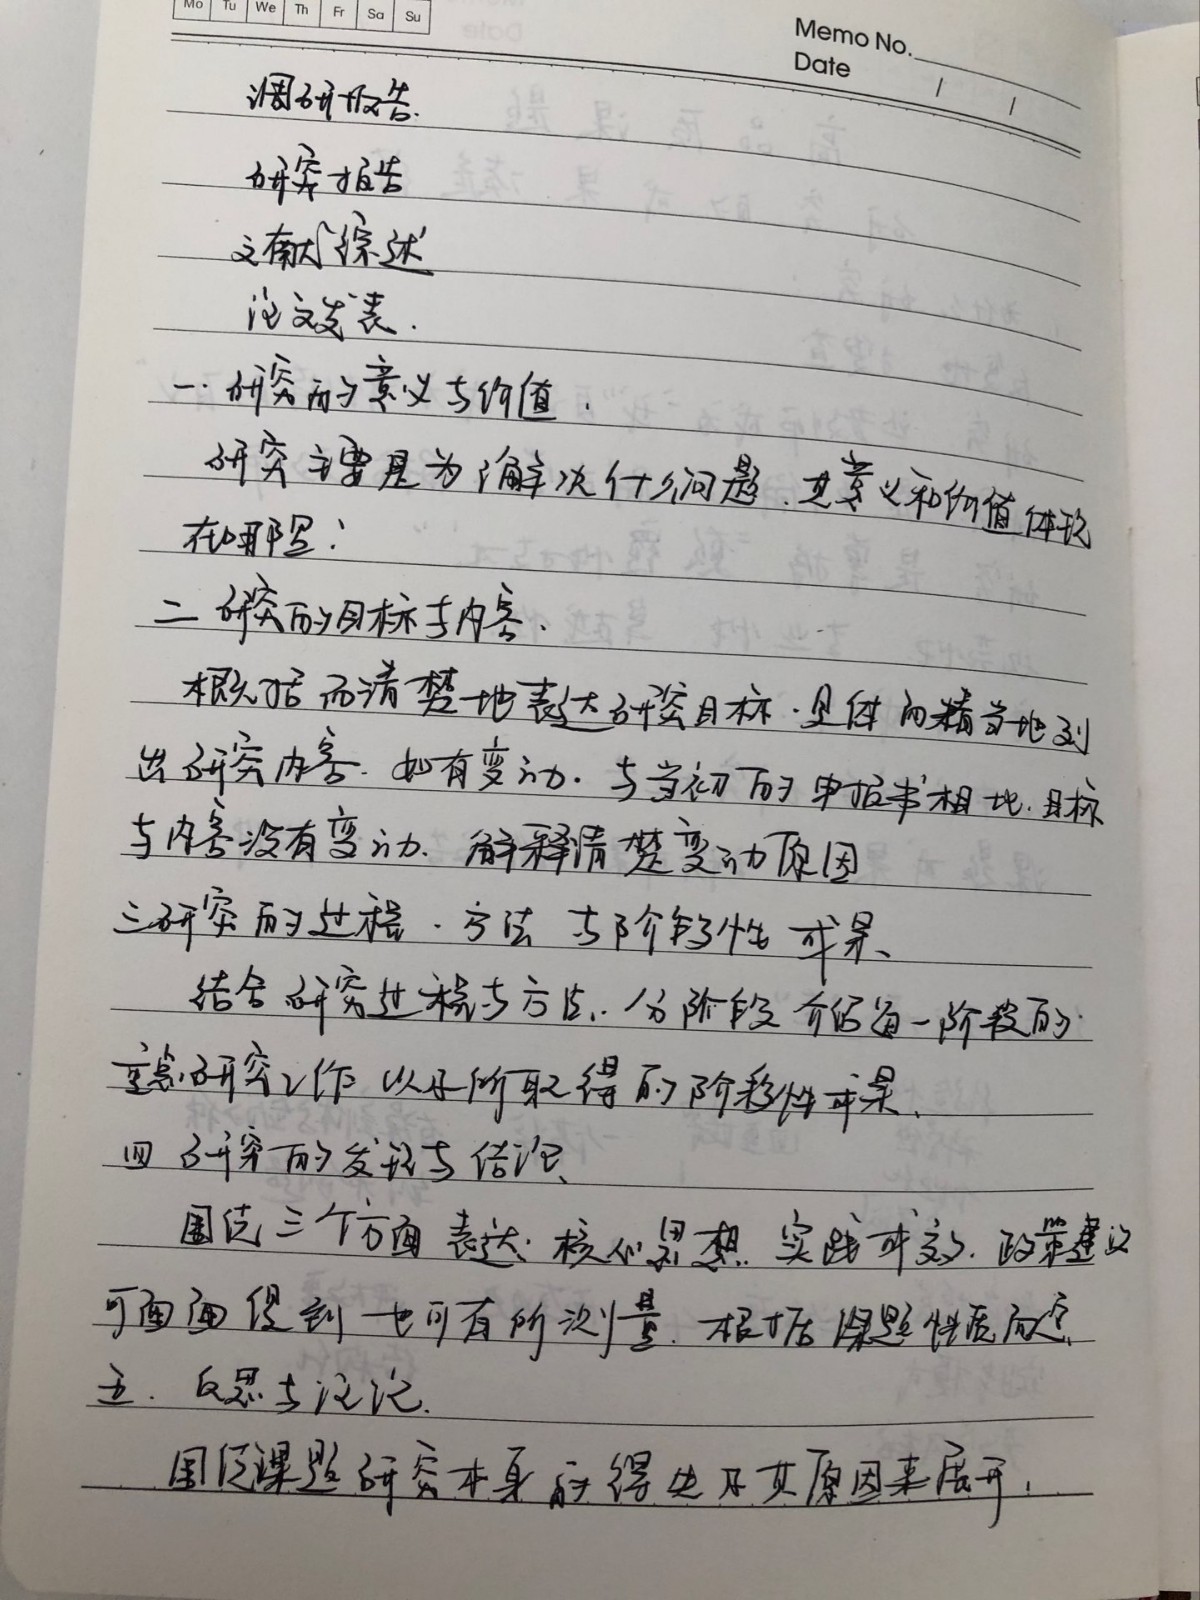 Mo Tu We Th Fr Sa Su
Memo No.
Date / /
调研报告.
研究报告
文献综述
论文发表.
一.研究的意义与价值.
研究主要是为了解决什么问题、其意义和价值体现
在哪里:
二 研究的目标与内容.
概括而清楚地表达研究目标.具体而精当地列
出研究内容.如有变动.与当初的申报书相比.目标
与内容没有变动.解释清楚变动原因
三研究的过程.方法 与阶段性成果、
结合研究过程与方法.分阶段介绍每一阶段的
重点研究工作以及所取得的阶段性成果、
四 研究的发现与结论、
围绕三个方面表达:核心思想.实践成效.政策建议
可面面俱到 也可有所测量.根据课题性质而定、
五.反思与讨论.
围绕课题研究本身的得失及其原因来展开.